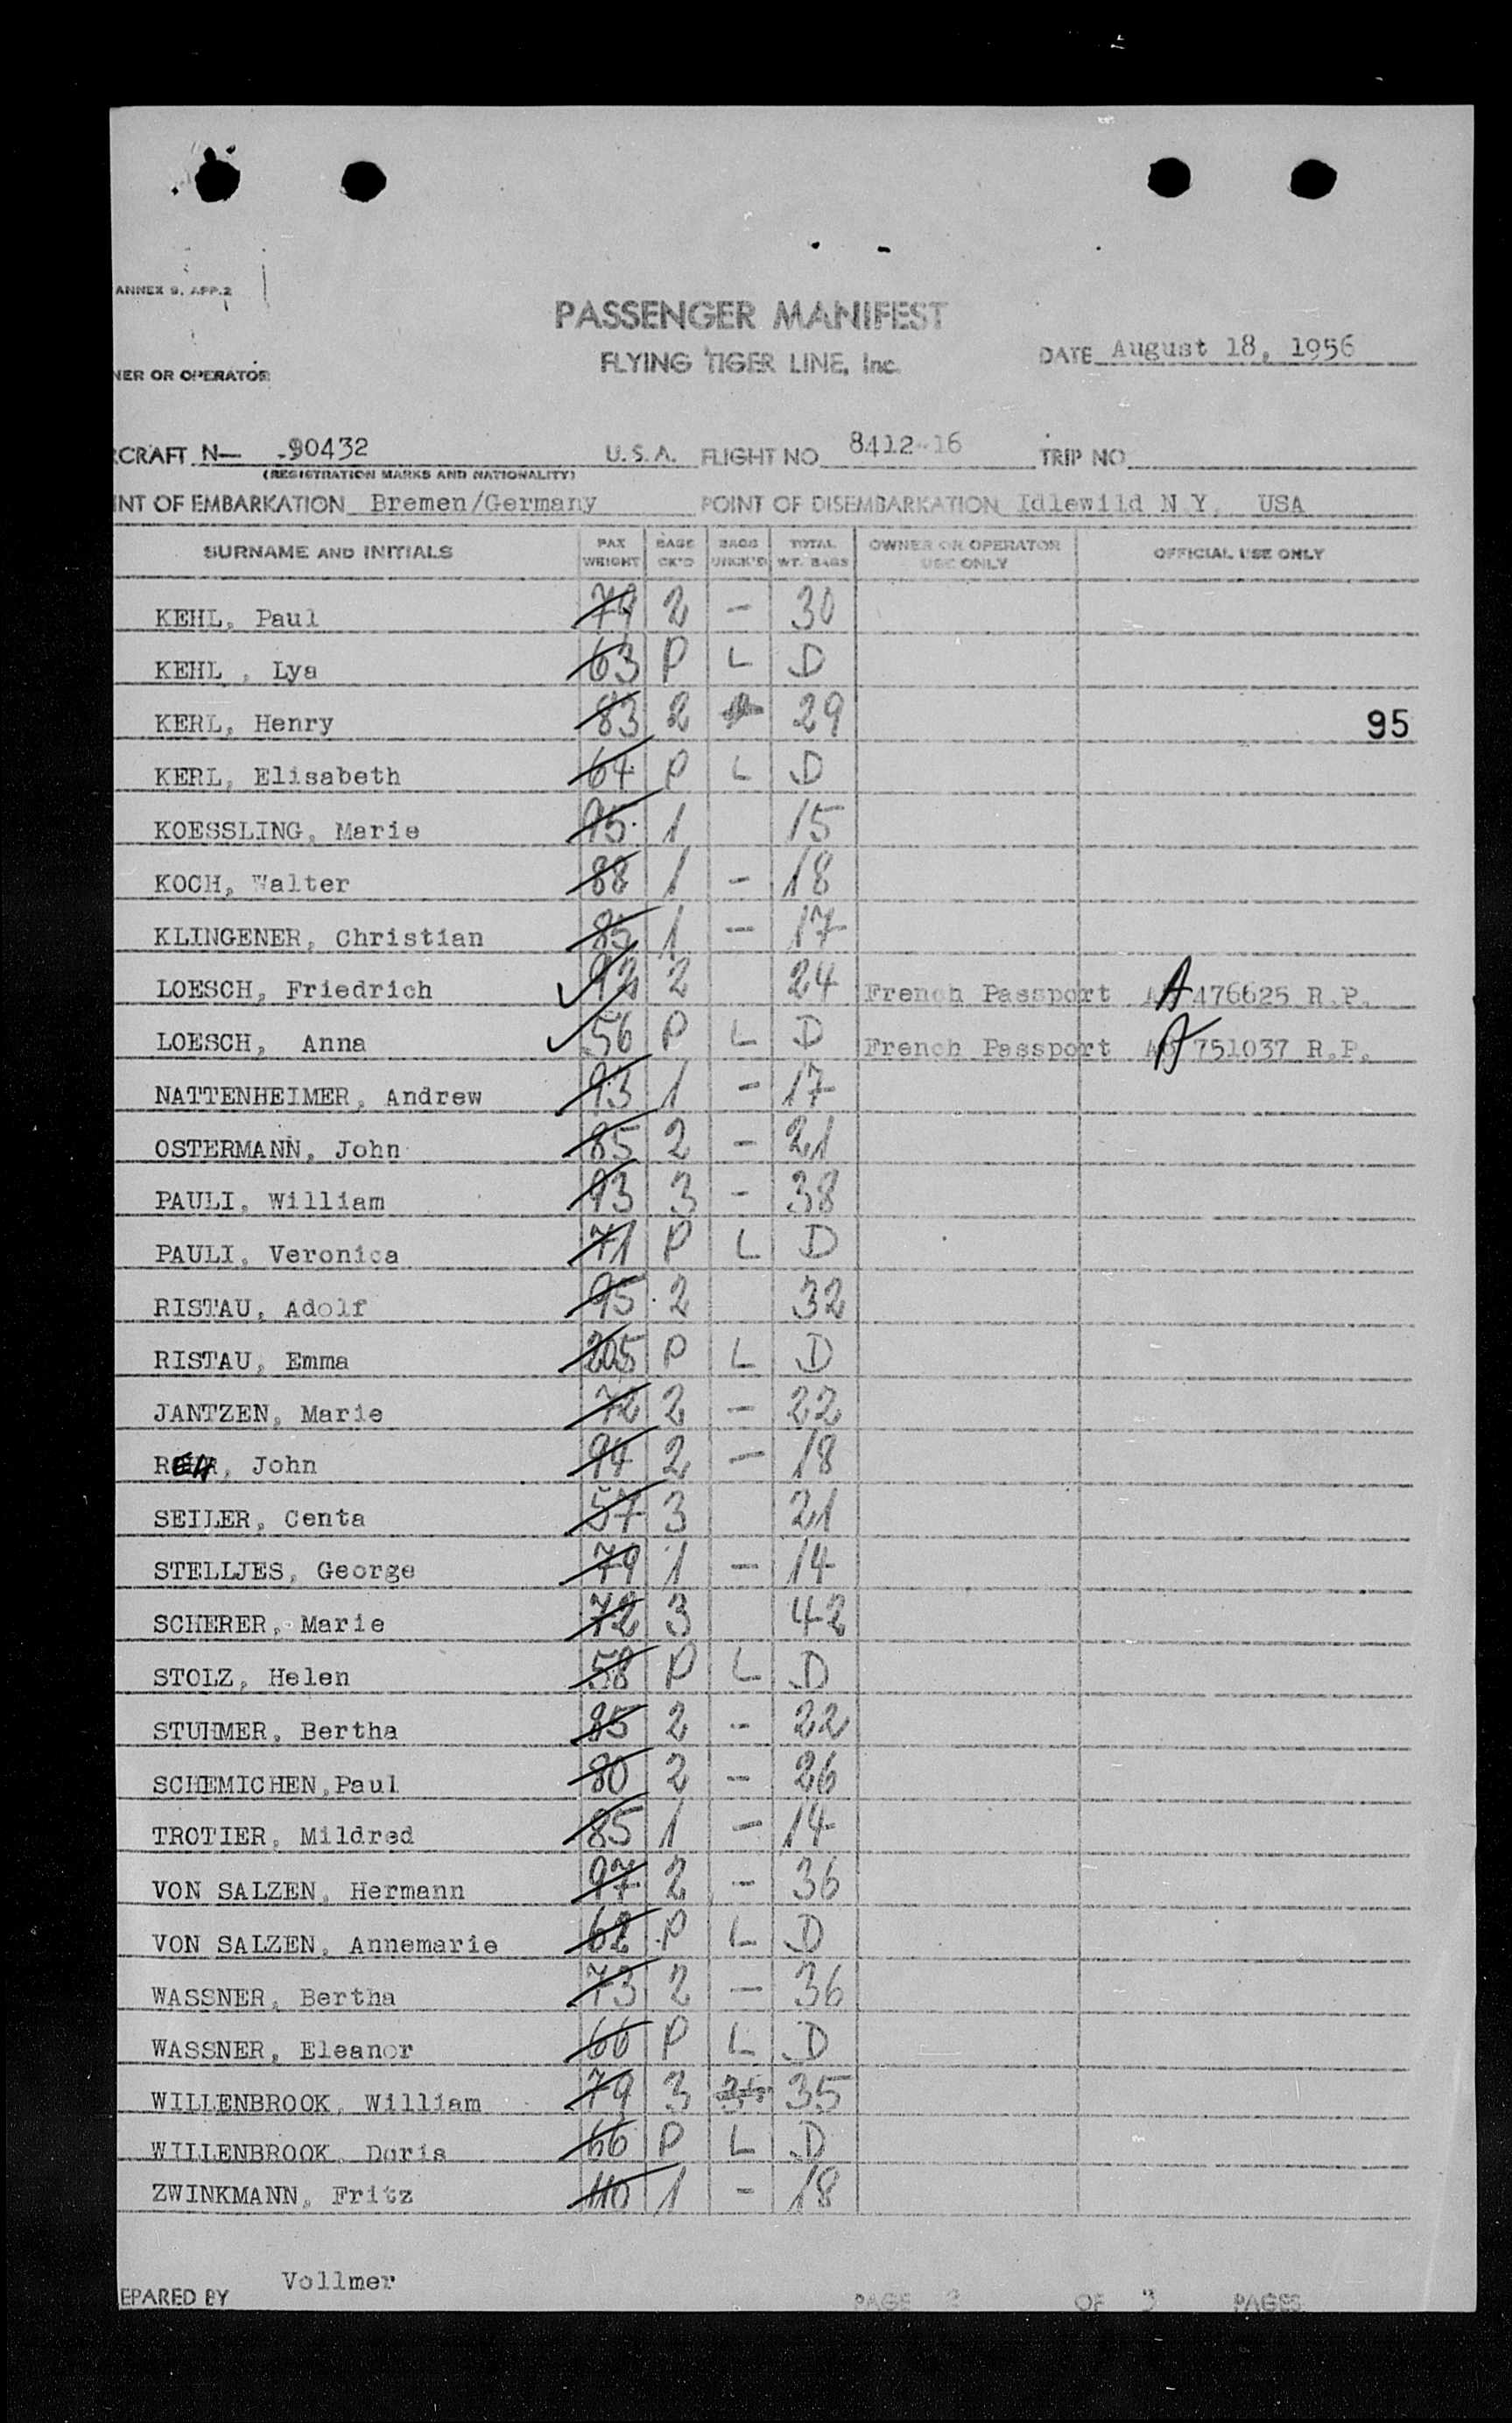 ANNEX 9, APP.2
PASSENGER MANIFEST
FLYING TIGER LINE, Inc.
DATE August 18, 1956
NER OR OPERATOR
CRAFT N— -90432 U.S.A. FLIGHT NO 8412-16 TRIP NO
(REGISTRATION MARKS AND NATIONALITY)
INT OF EMBARKATION Bremen/Germany POINT OF DISEMBARKATION Idlewild N Y, USA
SURNAME AND INITIALS PAX WEIGHT BAGS CK'D BAGS UNCK'D TOTAL WT. BAGS OWNER OR OPERATOR USE ONLY OFFICIAL USE ONLY
KEHL, Paul 79 2 - 30
KEHL , Lya 63 P L D
KERL, Henry 83 2 29 95
KERL, Elisabeth 64 P L D
KOESSLING, Marie 95 1 15
KOCH, Walter 88 1 - 18
KLINGENER, Christian 85 1 - 17
LOESCH, Friedrich 92 2 24 French Passport A 476625 R.P.
LOESCH, Anna 56 P L D French Passport 751037 R.P.
NATTENHEIMER, Andrew 93 1 - 17
OSTERMANN, John 85 2 - 21
PAULI, William 93 3 - 38
PAULI, Veronica 71 P L D
RISTAU, Adolf 95 2 32
RISTAU, Emma 205 P L D
JANTZEN, Marie 72 2 - 22
REH, John 94 2 - 18
SEILER, Centa 57 3 21
STELLJES, George 79 1 - 14
SCHERER, Marie 72 3 42
STOLZ, Helen 58 P L D
STUHMER, Bertha 85 2 - 22
SCHEMICHEN,Paul 80 2 - 26
TROTIER, Mildred 85 1 - 14
VON SALZEN, Hermann 97 2 - 36
VON SALZEN, Annemarie 62 P L D
WASSNER, Bertha 73 2 - 36
WASSNER, Eleanor 66 P L D
WILLENBROOK, William 79 3 35 35
WILLENBROOK, Doris 66 P L D
ZWINKMANN, Fritz 110 1 - 18
EPARED BY Vollmer PAGE 2 OF 3 PAGES